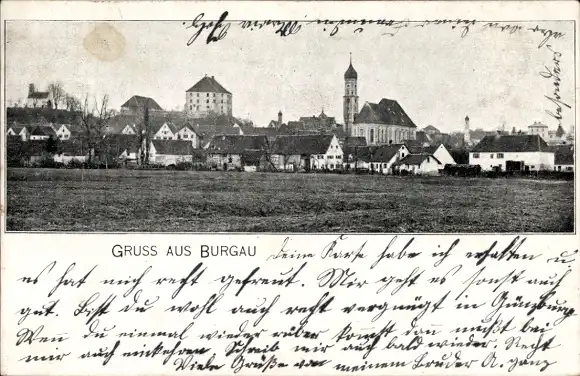 GRUSS AUS BURGAU
deine Karte habe ich erhalten u.
es hat mich recht gefreut. Mir geht es sonst auch
gut. Bist du wohl auch recht vergnügt in Günzburg
Wen du einmal wieder rüber komst dan must bei
mir auch einkehren Schreib mir auch bald wieder. Recht
Viele Grüße von meinem Bruder A. ganz
besonders